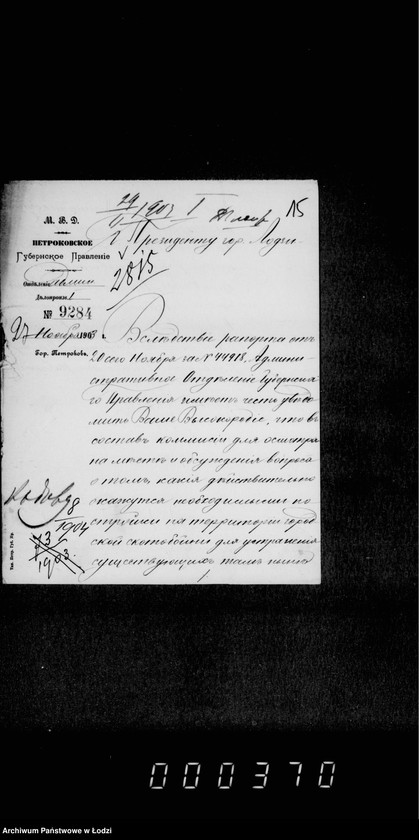 29/II 1903 I
15
М. В. Д.
ПЕТРОКОВСКОЕ
Губернское Правленіе
Отдѣленіе Админ
Дѣлопроизв. 1
№ 9284
27 Ноября 1903 г.
Гор. Петроковъ.
Президенту гор. Лодзи
2815
Вслѣдствіе рапорта отъ
20 сего Ноября за № 44918, Админи-
стративное Отдѣленіе Губернска-
го Правленія имѣетъ честь увѣдо-
мить Ваше Высокородіе, что въ
составъ коммисіи для осмотра
на мѣстѣ и обсужденія вопроса
о томъ, какія дѣйствительно
окажутся необходимыми по-
стройки на территоріи город-
ской скотобойни для устраненія
существующихъ тамъ
1904
73
1903
Тип. Петр. Губ. Пр.
000370
Archiwum Państwowe w Łodzi